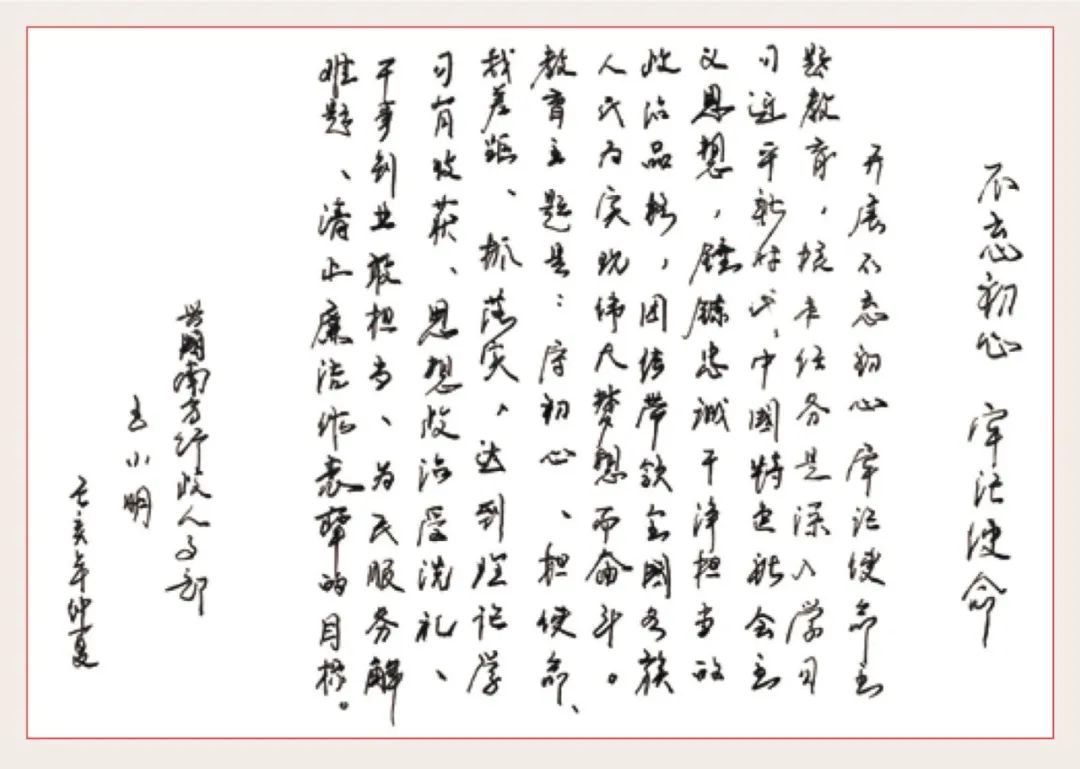 不忘初心 牢记使命
开展不忘初心牢记使命主
题教育，根本任务是深入学习
习近平新时代中國特色社会主
义思想，锤鍊忠诚干净担当的
政治品格，团结带领全國各族
人民为实现伟大梦想而奋斗。
教育主题是：守初心、担使命、
找差距、抓落实，达到理论学
习有收获、思想政治受洗礼、
干事创业敢担当、为民服务解
难题、清正廉洁作表率的目标。
南方行政人事部
小明
己亥年仲夏